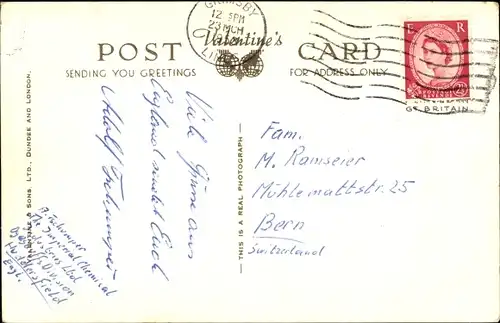 GRIMSBY
12 15 PM
23 MCH
LINCS
E R
2½
POST CARD
Valentine's
SENDING YOU GREETINGS
FOR ADDRESS ONLY
GT. BRITAIN.
VALENTINE & SONS, LTD., DUNDEE AND LONDON.
THIS IS A REAL PHOTOGRAPH
Viele Grüsse aus
England sendet Euch
Adolf
Fam.
M. Ramseier
Mühlemattstr. 25
Bern
Switzerland
The Imperial Chemical
Division
Huddersfield
Engl.